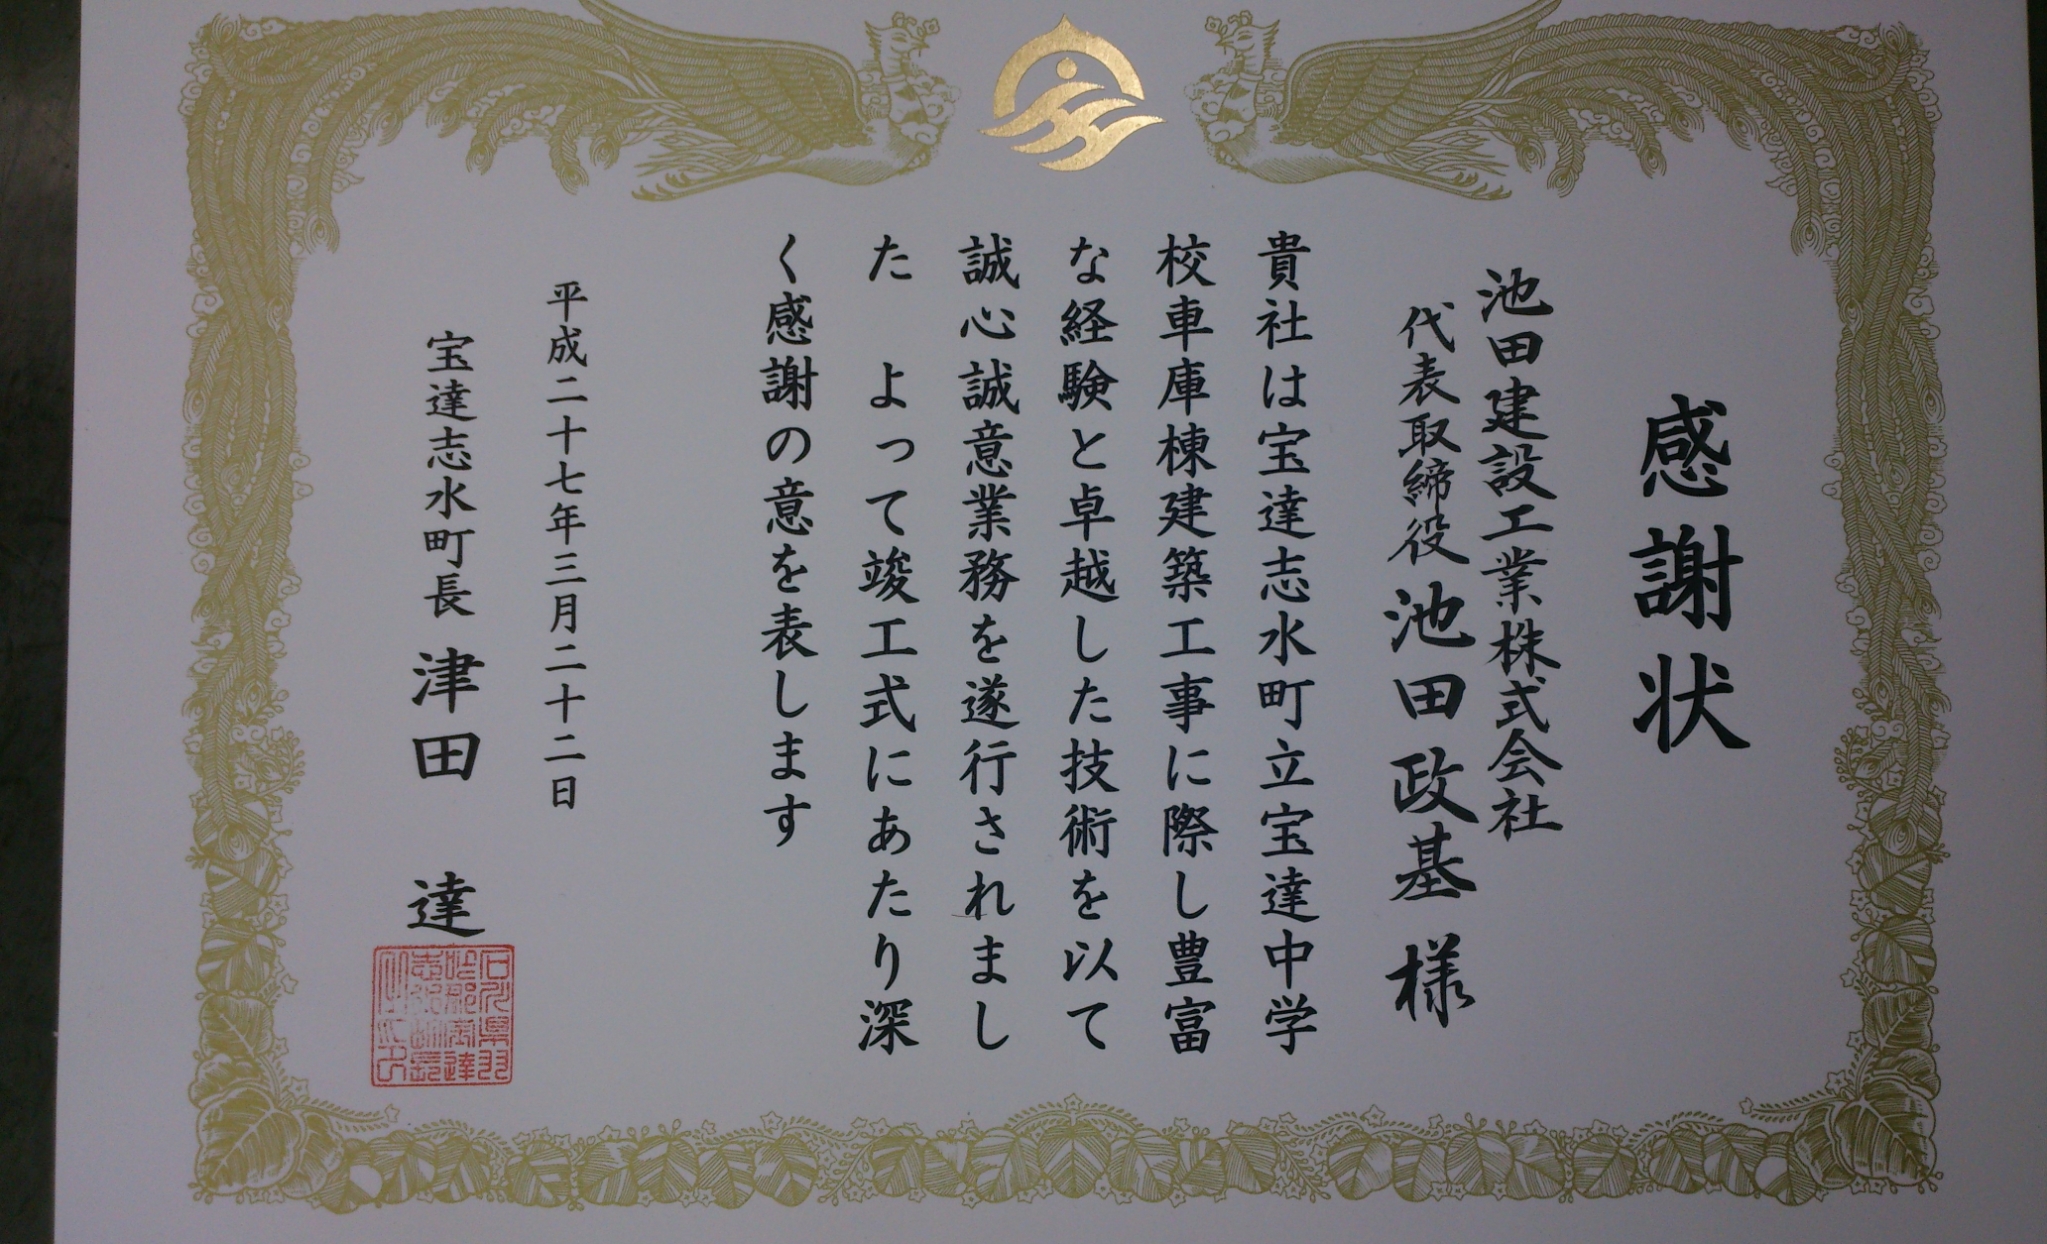 感謝状
池田建設工業株式会社
代表取締役 池田政基 様
貴社は宝達志水町立宝達中学
校車庫棟建築工事に際し豊富
な経験と卓越した技術を以て
誠心誠意業務を遂行されまし
た よって竣工式にあたり深
く感謝の意を表します
平成二十七年三月二十二日
宝達志水町長 津田 達